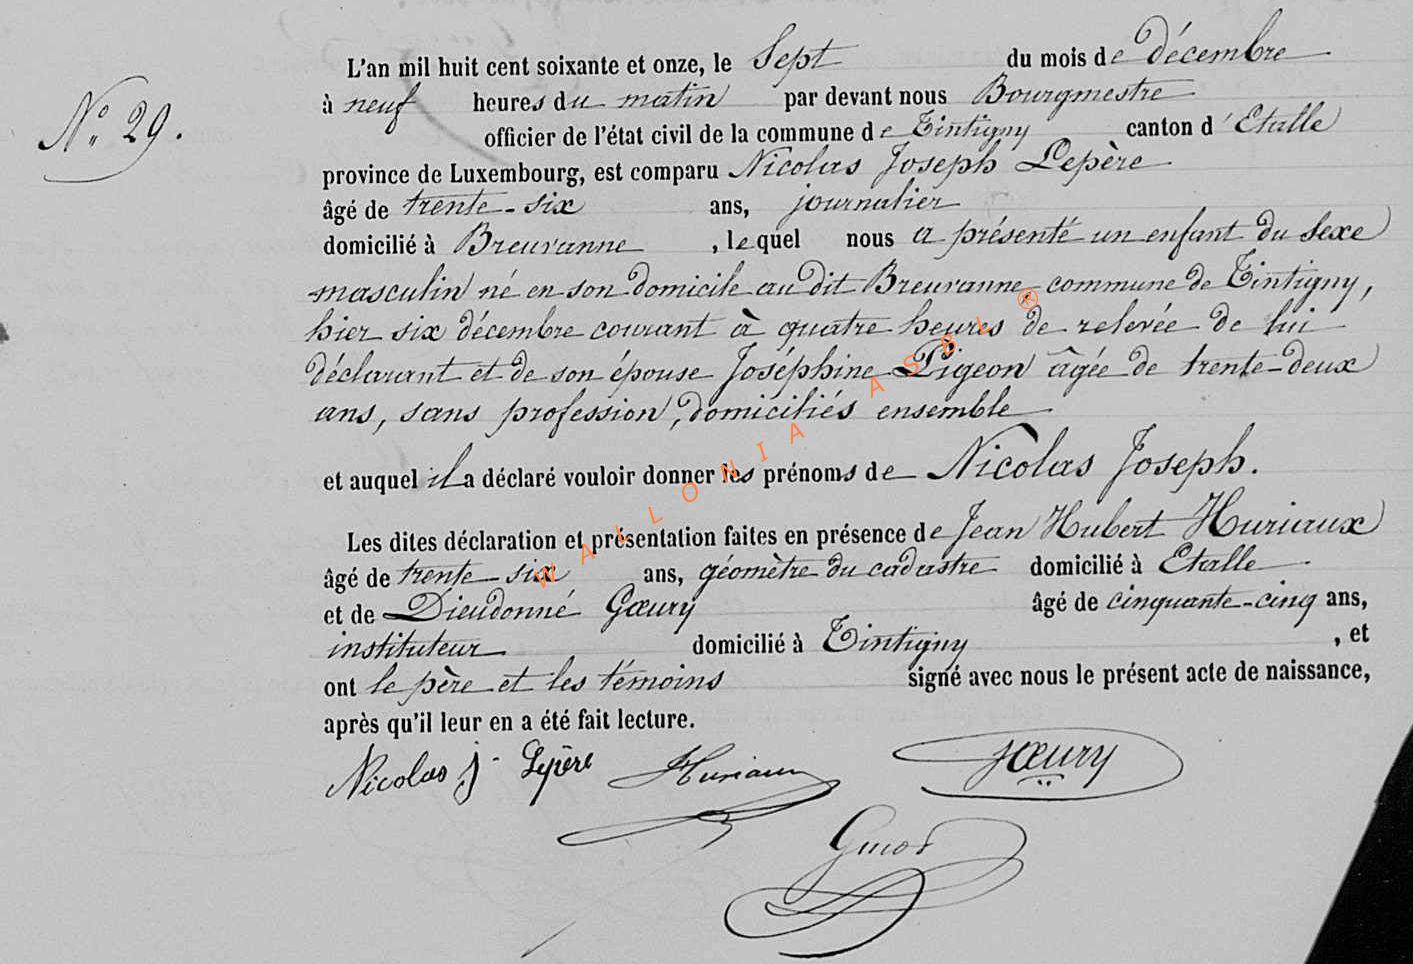 L'an mil huit cent soixante et onze, le Sept du mois de décembre
N° 29.
à neuf heures du matin par devant nous Bourgmestre
officier de l'état civil de la commune de Tintigny canton d'Etalle
province de Luxembourg, est comparu Nicolas Joseph Lepère
âgé de trente-six ans, journalier
domicilié à Breuvanne, lequel nous a présenté un enfant du sexe
masculin né en son domicile au dit Breuvanne commune de Tintigny,
hier six décembre courant à quatre heures de relevée de lui
déclarant et de son épouse Joséphine Pigeon âgée de trente-deux
ans, sans profession, domiciliés ensemble
et auquel il a déclaré vouloir donner les prénoms de Nicolas Joseph.
Les dites déclaration et présentation faites en présence de Jean Hubert Huriaux
âgé de trente-six ans, géomètre du cadastre domicilié à Etalle
et de Dieudonné Gœury âgé de cinquante-cinq ans,
instituteur domicilié à Tintigny, et
ont le père et les témoins signé avec nous le présent acte de naissance,
après qu'il leur en a été fait lecture.
Nicolas J. Lepère Huriaux Gœury
WALLONIA ASBL ®